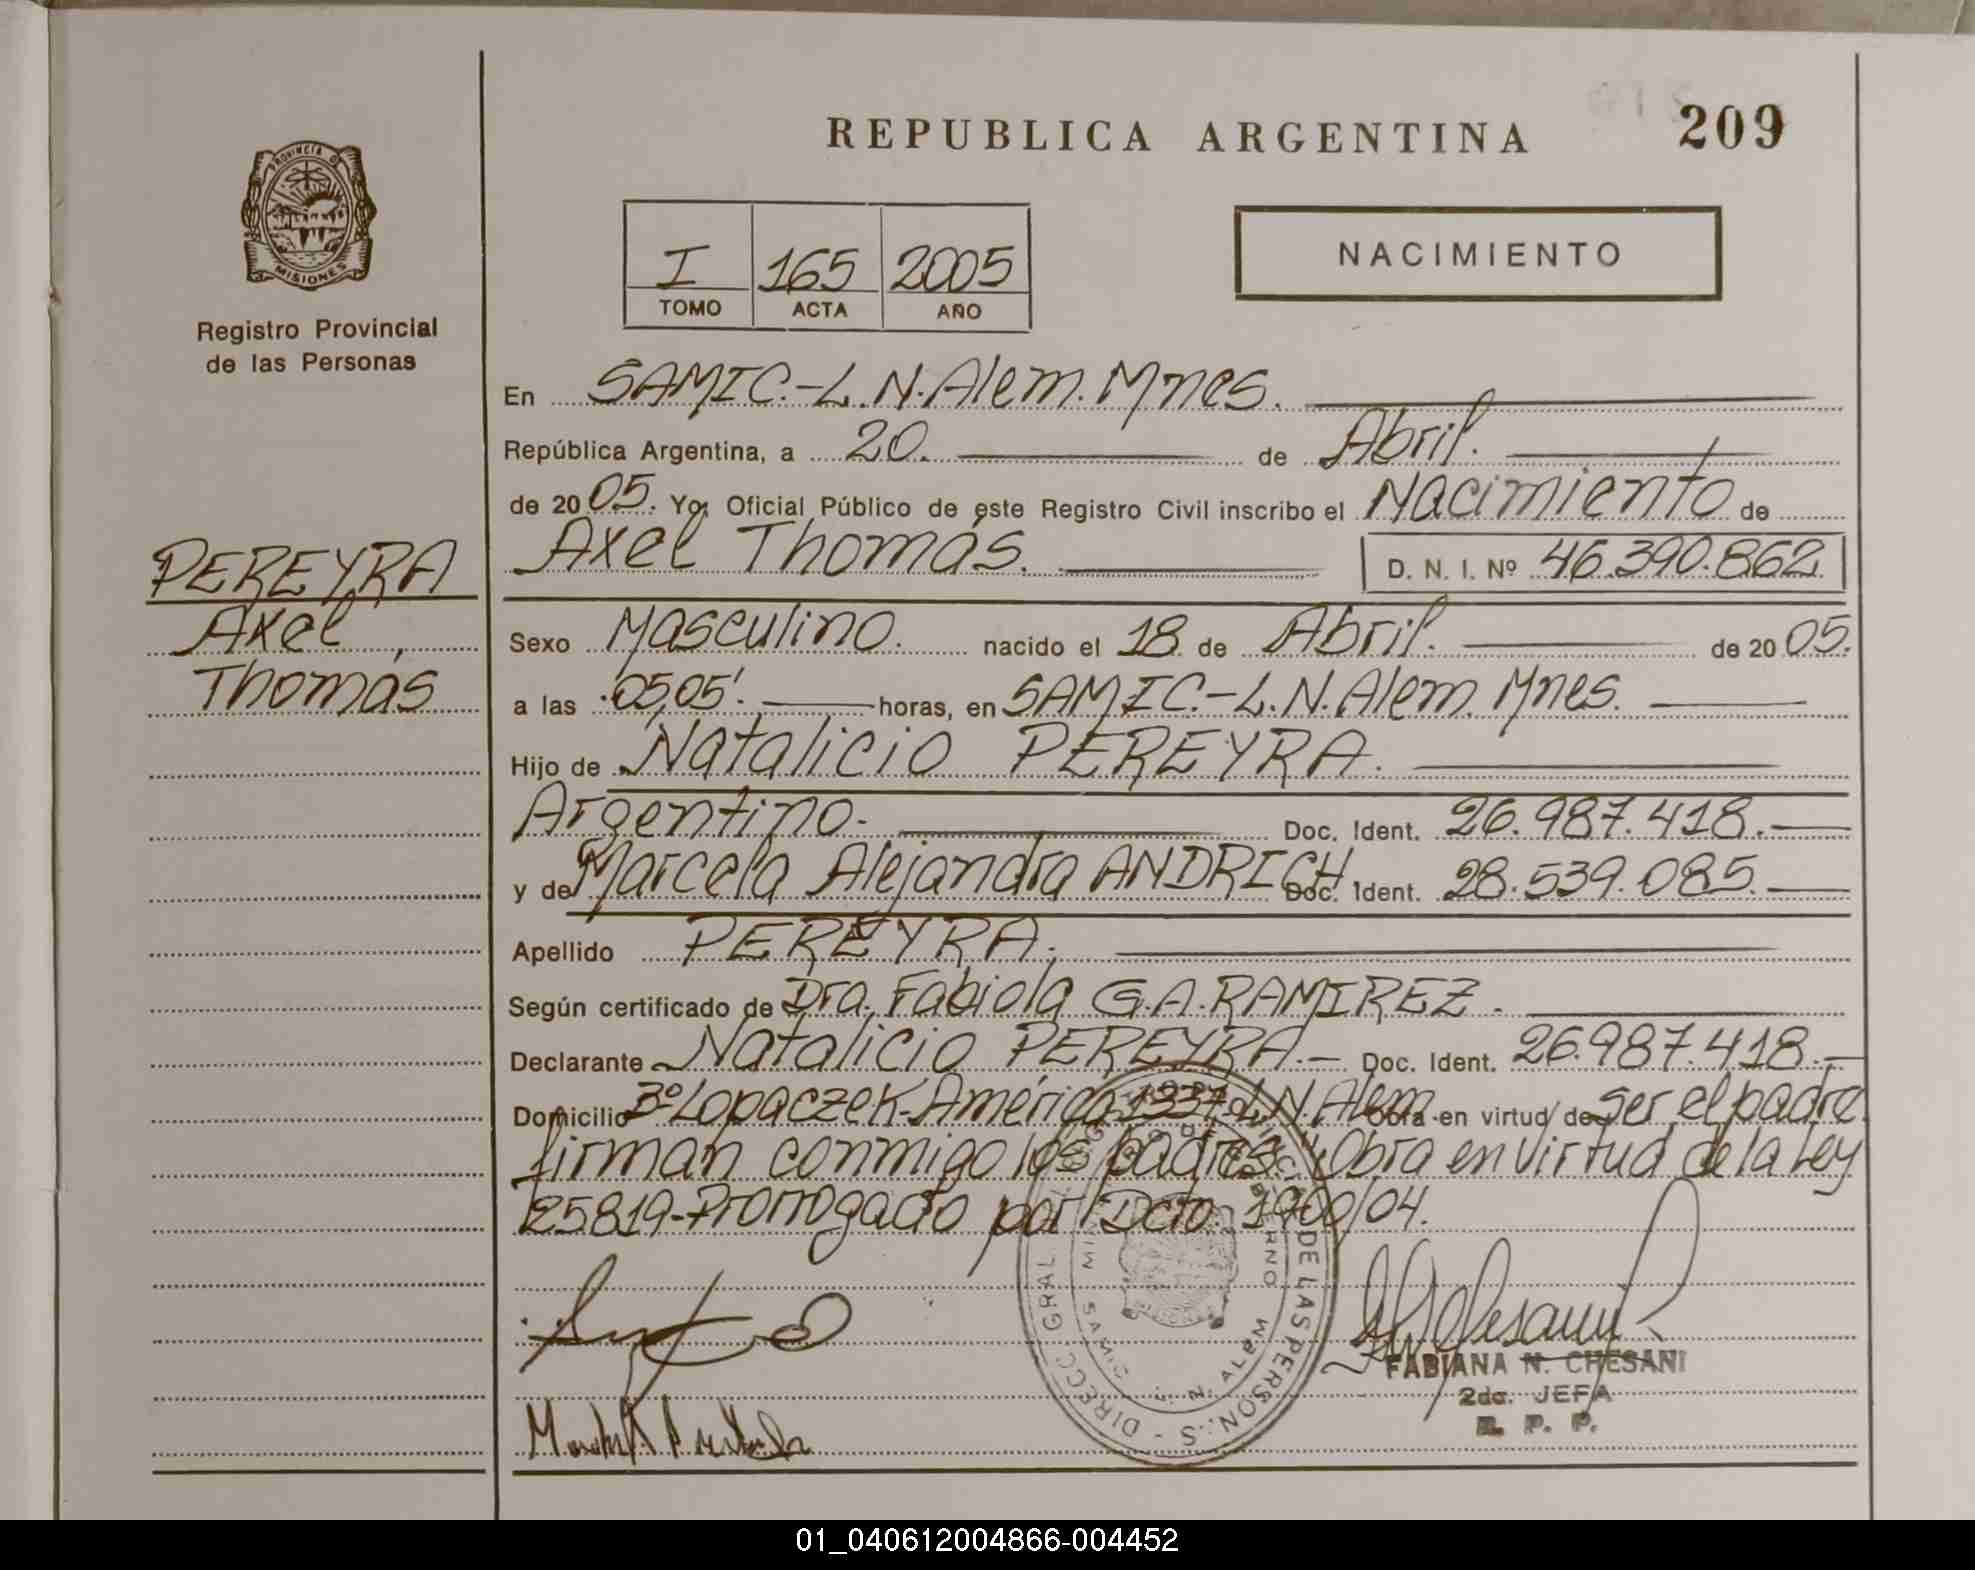 REPUBLICA ARGENTINA 209
PROVINCIA DE
MISIONES
Registro Provincial
de las Personas
I 165 2005
TOMO ACTA AÑO
NACIMIENTO
En SAMIC.-L.N.Alem.Mnes.
República Argentina, a 20. de Abril.
de 20 05. Yo, Oficial Público de este Registro Civil inscribo el Nacimiento de
PEREYRA
Axel
Thomás
Axel Thomás. D. N. I. Nº 46.390.862
Sexo Masculino. nacido el 18 de Abril. de 20 05.
a las 05,05'. horas, en SAMIC.-L.N.Alem.Mnes.
Hijo de Natalicio PEREYRA.
Argentino.- Doc. Ident. 26.987.418.-
y de Marcela Alejandra ANDRICH. Doc. Ident. 28.539.085.
Apellido PEREYRA.
Según certificado de Dra. Fabiola G.A.RAMIREZ.
Declarante Natalicio PEREYRA.- Doc. Ident. 26.987.418.-
Domicilio Bº Lopaczek-América 1337-L.N.Alem Obra en virtud de ser el padre.
firman conmigo los padres. Obra en virtud de la Ley
25819-Prorrogado por Dcto. 1900/04.
DIRECC GRAL DE LAS PERSONAS
SAMIC L. N. ALEM
FABIANA N. CHESANI
2da. JEFA
R. P. P.
01_040612004866-004452